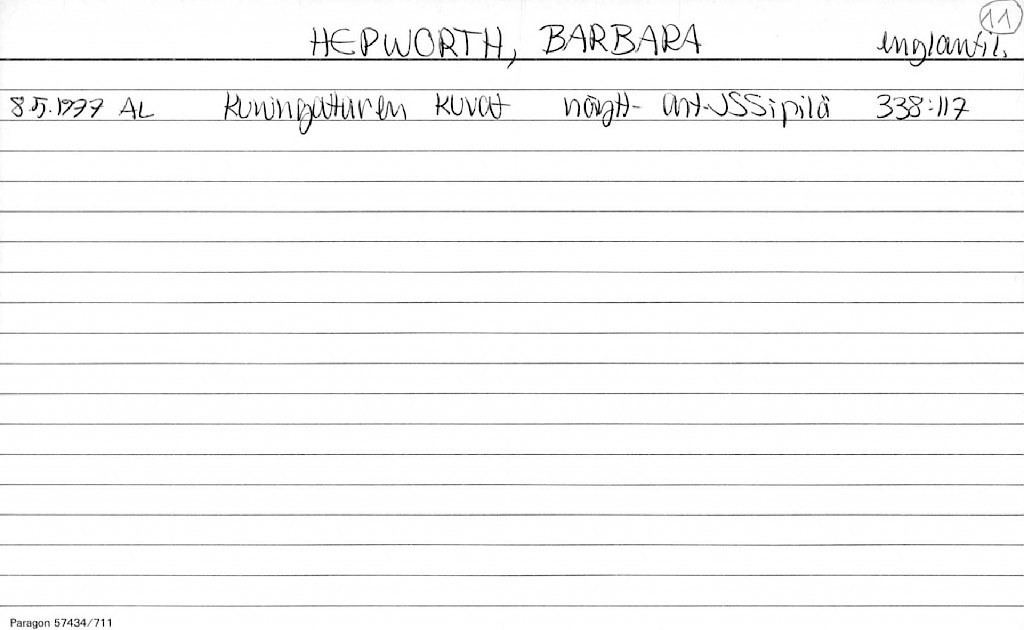 HEPWORTH, BARBARA englantil. 11
8.5.1977 AL Kuningattaren kuvat näytt- art-JSSipilä 338:117
Paragon 57434/711